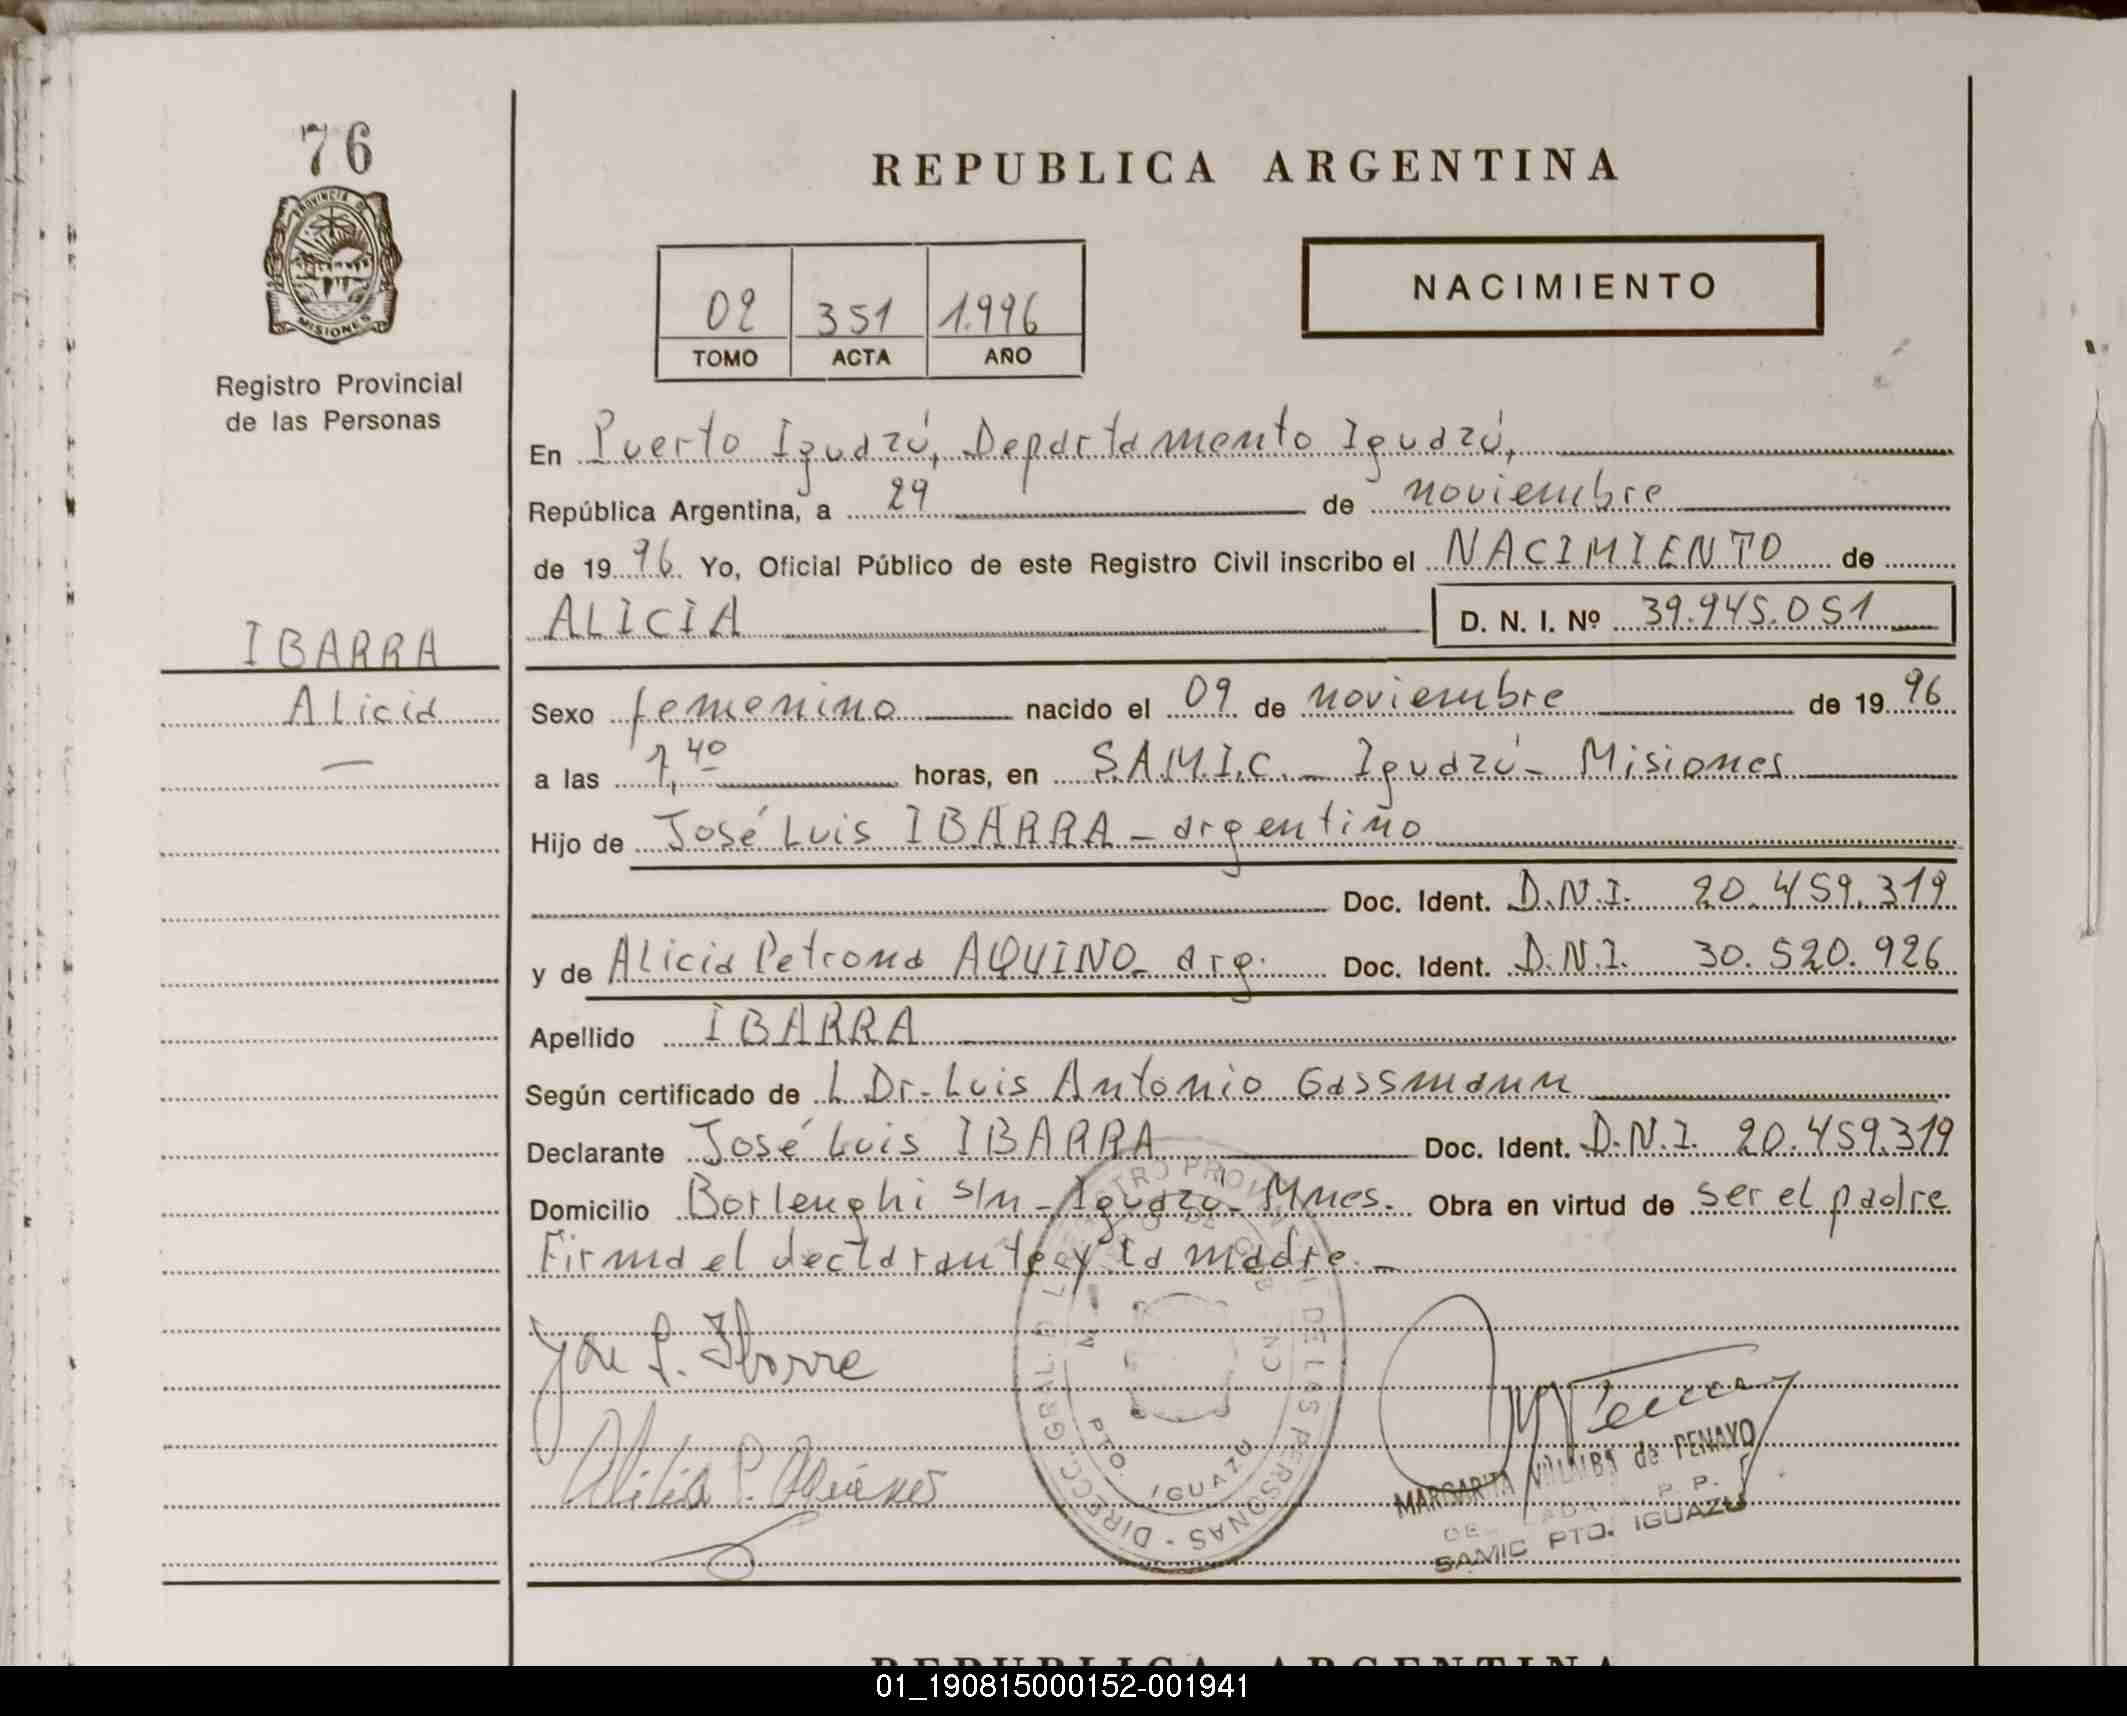 76
PROVINCIA DE
MISIONES
Registro Provincial
de las Personas
IBARRA
Alicia
REPUBLICA ARGENTINA
02 351 1.996
TOMO ACTA AÑO
NACIMIENTO
En Puerto Iguazú, Departamento Iguazú,
República Argentina, a 29 de noviembre
de 1996 Yo, Oficial Público de este Registro Civil inscribo el NACIMIENTO de
ALICIA D. N. I. Nº 39.945.051
Sexo femenino nacido el 09 de noviembre de 1996
a las 7,40 horas, en S.A.M.I.C. - Iguazú - Misiones
Hijo de José Luis IBARRA - argentino
Doc. Ident. D.N.I. 20.459.319
y de Alicia Petrona AQUINO - arg. Doc. Ident. D.N.I. 30.520.926
Apellido IBARRA
Según certificado de L Dr. Luis Antonio Gassmann
Declarante José Luis IBARRA Doc. Ident. D.N.I. 20.459.319
Domicilio Borlenghi s/n - Iguazú - Mnes. Obra en virtud de ser el padre
Firma el declarante y la madre. -
José L. Ibarra
MARGARITA VILLALBA de PENAYO
SAMIC PTO. IGUAZU
DE LAS PERSONAS - DIRECC. GRAL. D
PTO. IGUAZU
REPUBLICA ARGENTINA
01_190815000152-001941